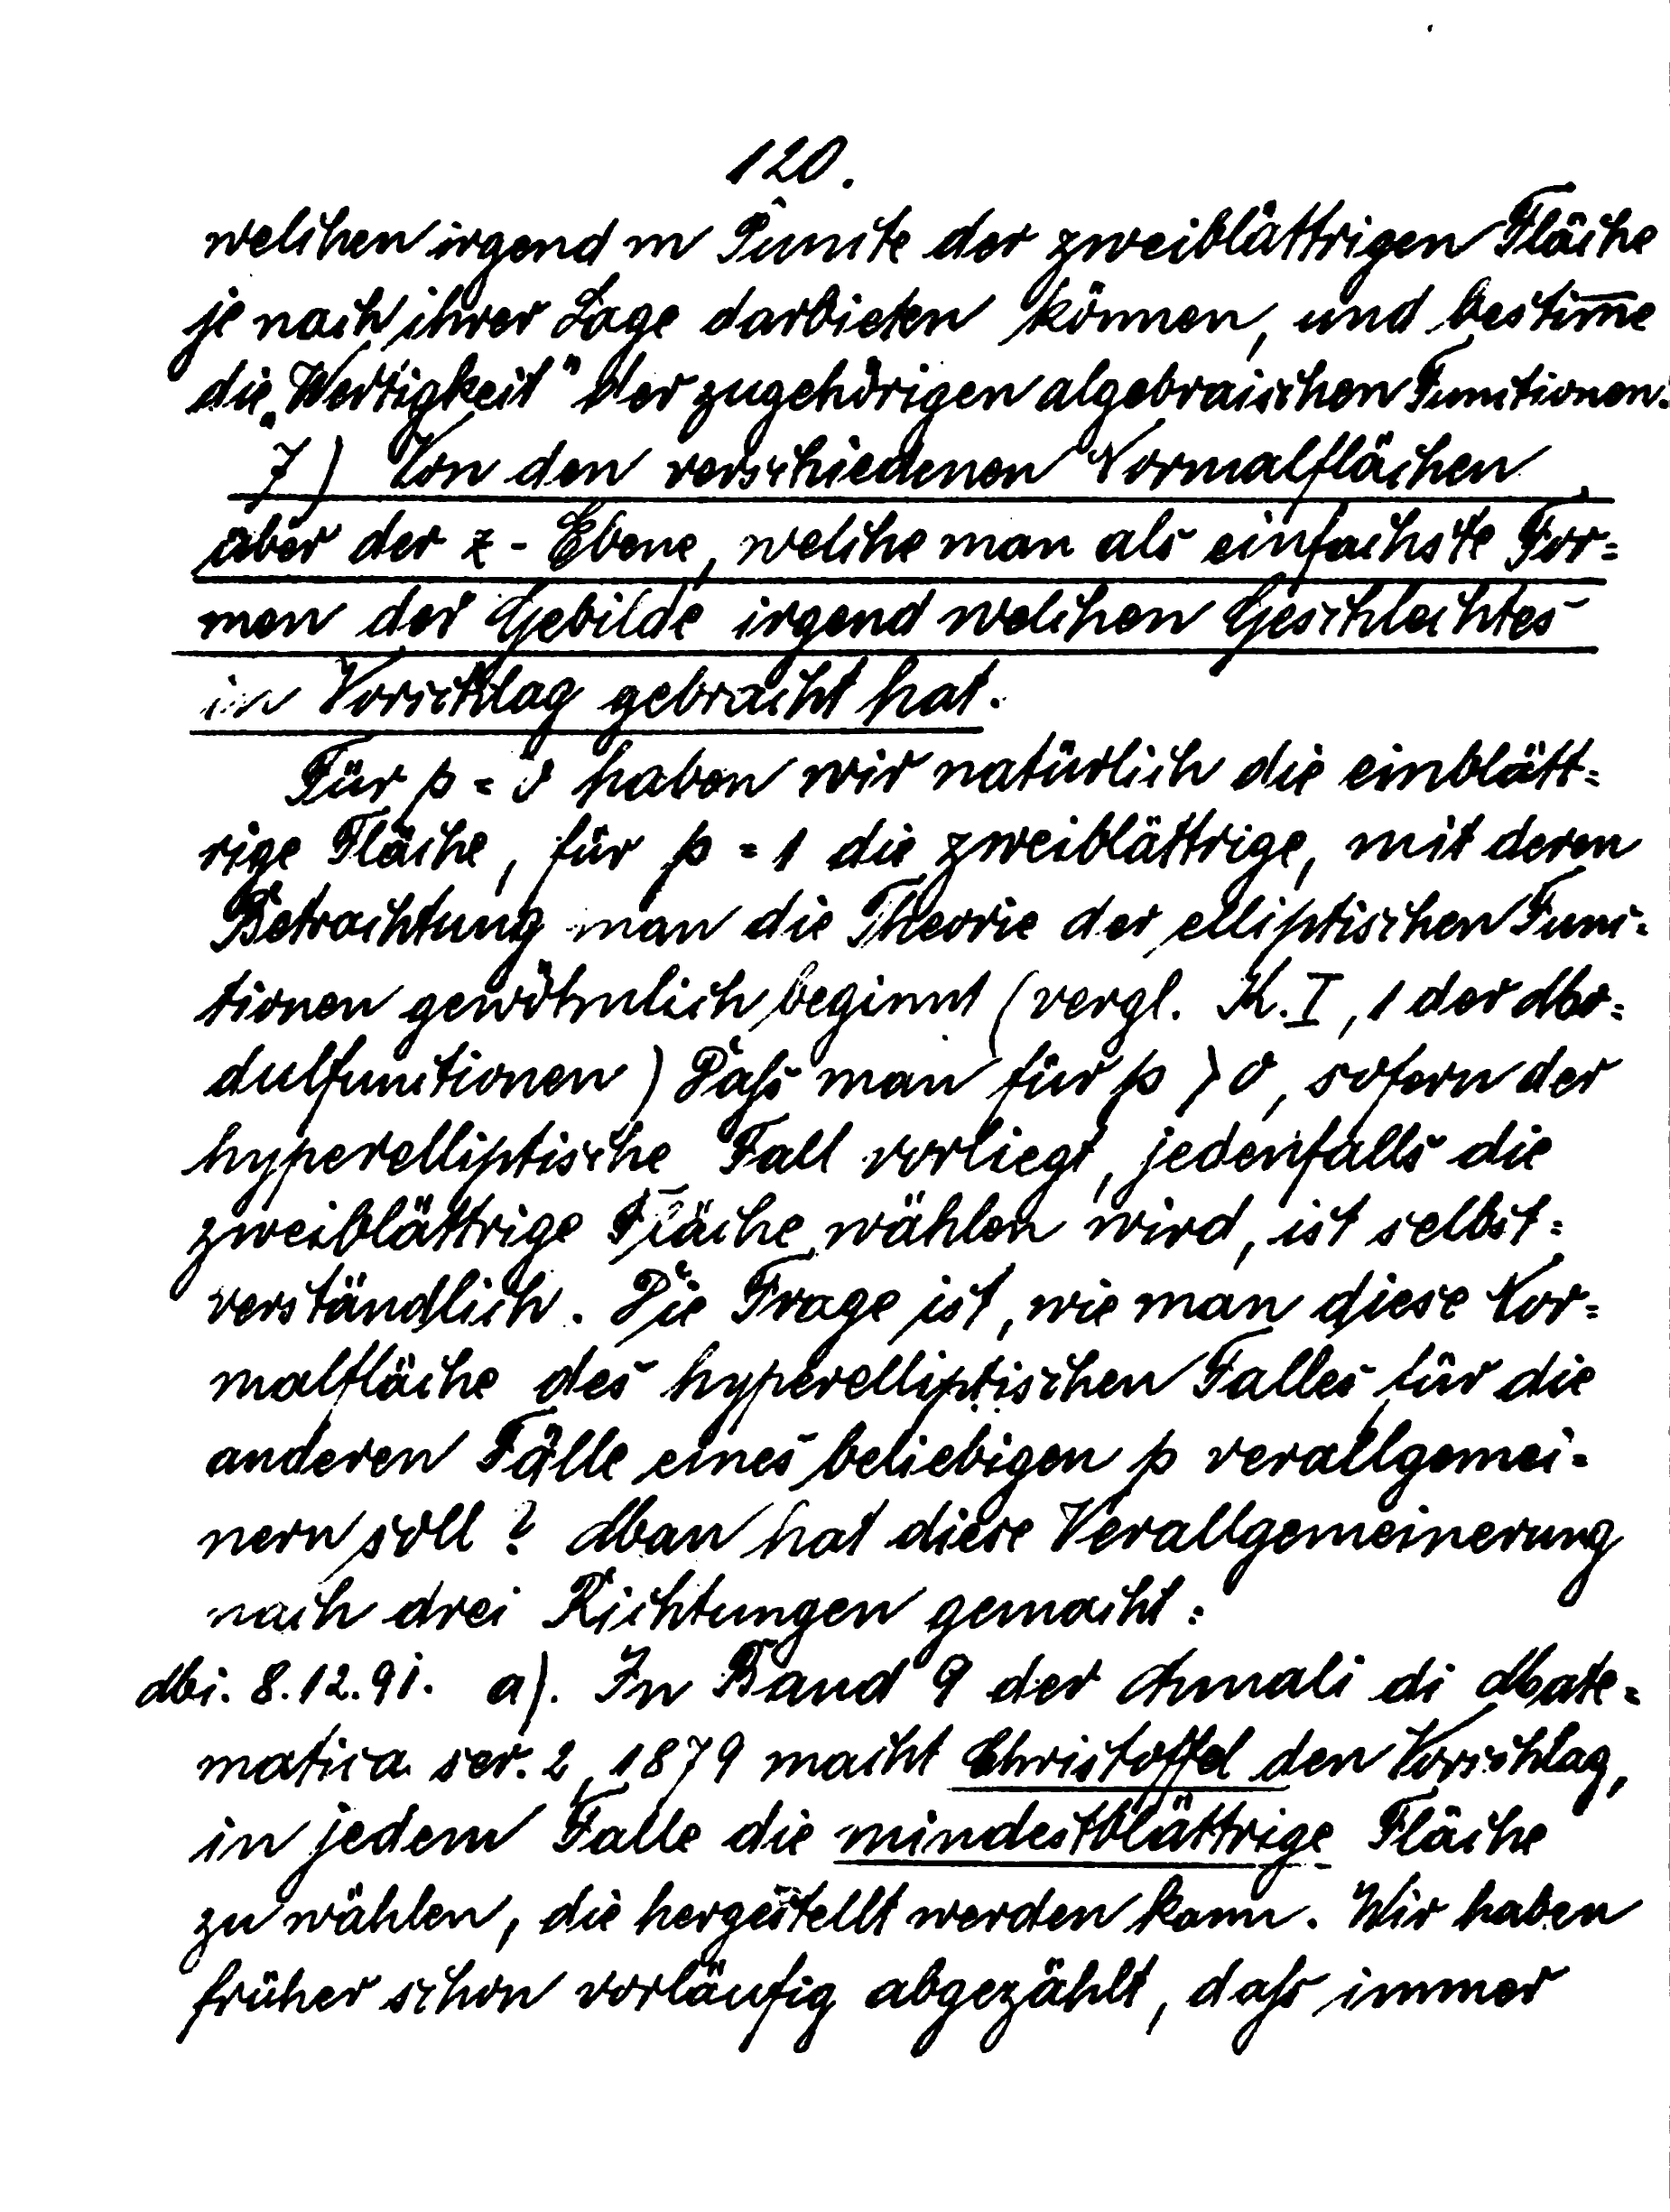 120.
welchen irgend m Puncte der zweiblättrigen Fläche
je nach ihrer Lage darbieten können, und bestim̅e
die „Wertigkeit" der zugehörigen algebraischen Functionen.
7) Von den verschiedenen Normalflächen
über der z-Ebene, welche man als einfachste For=
men der Gebilde irgend welchen Geschlechtes
in Vorschlag gebracht hat.
Für p = 0 haben wir natürlich die einblätt=
rige Fläche, für p = 1 die zweiblättrige, mit deren
Betrachtung man die Theorie der elliptischen Func=
tionen gewöhnlich beginnt (vergl. K. I, 1 der Mo=
dulfunctionen) Dass man für p > 0, sofern der
hyperelliptische Fall vorliegt, jedenfalls die
zweiblättrige Fläche wählen wird, ist selbst=
verständlich. Die Frage ist, wie man diese Nor=
malfläche des hyperelliptischen Falles für die
anderen Fälle eines beliebigen p verallgemei=
nern soll? Man hat diese Verallgemeinerung
nach drei Richtungen gemacht:
Mi. 8.12.91. a). In Band 9 der Annali di Mate=
matica ser. 2, 1879 macht Christoffel den Vorschlag,
in jedem Falle die mindestblättrige Fläche
zu wählen, die hergestellt werden kann. Wir haben
früher schon vorläufig abgezählt, dass immer